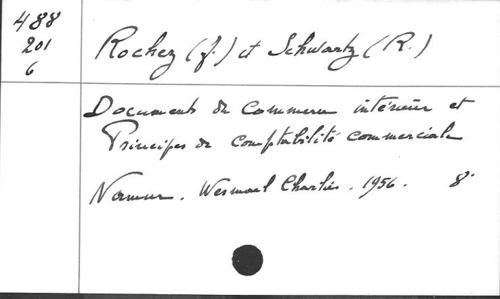 488
201
6
Rochez (J.) et Schwartz (R.)
Documents de commerce intérieur et
Principes de comptabilité commerciale
Namur. Wesmael Charlier. 1956. 8°